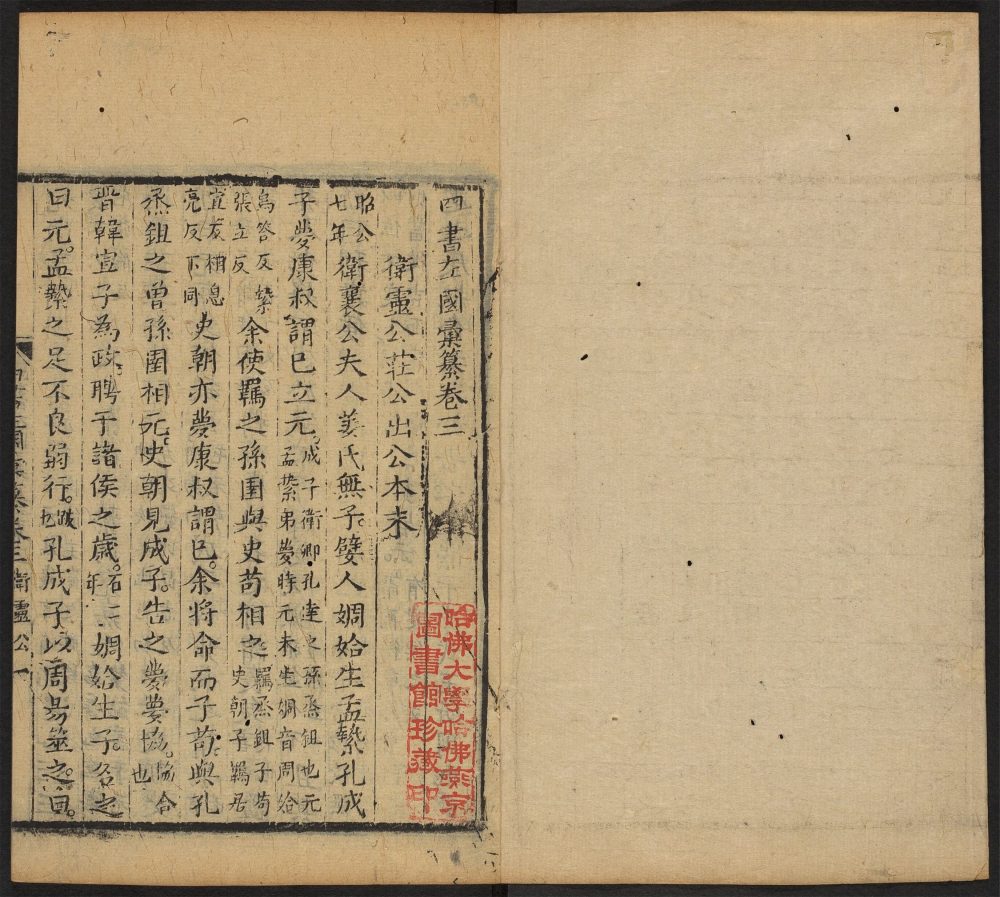 四書左國彙纂卷三
衛靈公莊公出公本末
昭公七年衛襄公夫人姜氏無子。嬖人婤姶生孟縶孔成
子夢康叔謂已立元。成子衛卿孔達之孫烝鉏也元孟縶弟夢時元未生婤音周姶
烏答反縶張立反余使羈之孫圉與史苟相之羈烝鉏子苟史朝子羈居
宜反相息亮反下同史朝亦夢康叔謂已。余將命而子苟。與孔
烝鉏之曾孫圉相元。史朝見成子。告之夢夢協。協合也
晉韓宣子為政。聘于諸侯之歲。在二年婤姶生子。名之
曰元。孟縶之足不良弱行。跛也孔成子以周易筮之。曰。
四書左國彙纂卷三 衛靈公 一
哈佛大學哈佛燕京
圖書館珍藏印